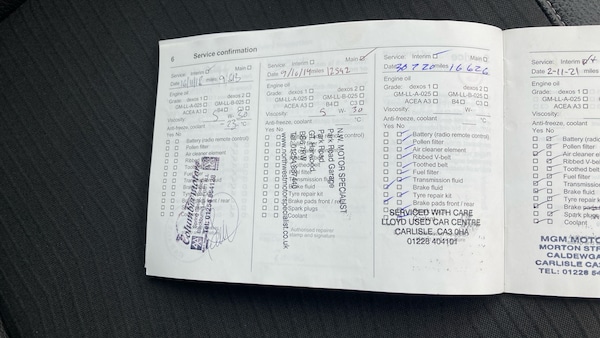 6 Service confirmation
Service: Interim Main
Date miles
Engine oil
Grade: dexos 1 dexos 2
GM-LL-A-025 GM-LL-B-025
ACEA A3
Viscosity: W-
Anti-freeze, coolant °C
Yes No
Battery (radio remote control)
Pollen filter
Air cleaner element
Ribbed V-belt
Toothed belt
Fuel filter
Transmission fluid
Brake fluid
Tyre repair kit
Brake pads front / rear
Spark plugs
Coolant
Service: Interim Main
Date 9/10/19 miles 12542
Engine oil
Grade: dexos 1 dexos 2
GM-LL-A-025 GM-LL-B-025
ACEA A3 B4 C3
Viscosity: 5 W- 30
Anti-freeze, coolant °C
Yes No
Battery (radio remote control)
Pollen filter
Air cleaner element
Ribbed V-belt
Toothed belt
Fuel filter
Brake fluid
Tyre repair kit
Brake pads front / rear
Spark plugs
Coolant
Authorised repairer
stamp and signature
N.W. MOTOR SPECIALIST
Park Road Garage
Park Road
www.northwestmotorspecialist.co.uk
Service: Interim Main
Date 30.7.20 miles 16.626
Engine oil
Grade: dexos 1 dexos 2
GM-LL-A-025 GM-LL-B-025
ACEA A3 B4 C3
Viscosity: W-
Anti-freeze, coolant °C
Yes No
Battery (radio remote control)
Pollen filter
Air cleaner element
Ribbed V-belt
Toothed belt
Fuel filter
Transmission fluid
Brake fluid
Tyre repair kit
Brake pads front / rear
SERVICED WITH CARE
LLOYD USED CAR CENTRE
CARLISLE, CA3 0HA
01228 404101
Service: Interim
Date 2-11-21 miles
Engine oil
Grade: dexos 1
GM-LL-A-025
ACEA A3
Viscosity:
Anti-freeze, coolant
Yes No
Battery (radio
Pollen filter
Air cleaner
Ribbed V-belt
Toothed belt
Fuel filter
Transmission
Brake fluid
Tyre repair
Brake pads
Spark plugs
Coolant
MGM MOTO
MORTON ST
CALDEWGA
CARLISLE CA
TEL: 01228 5